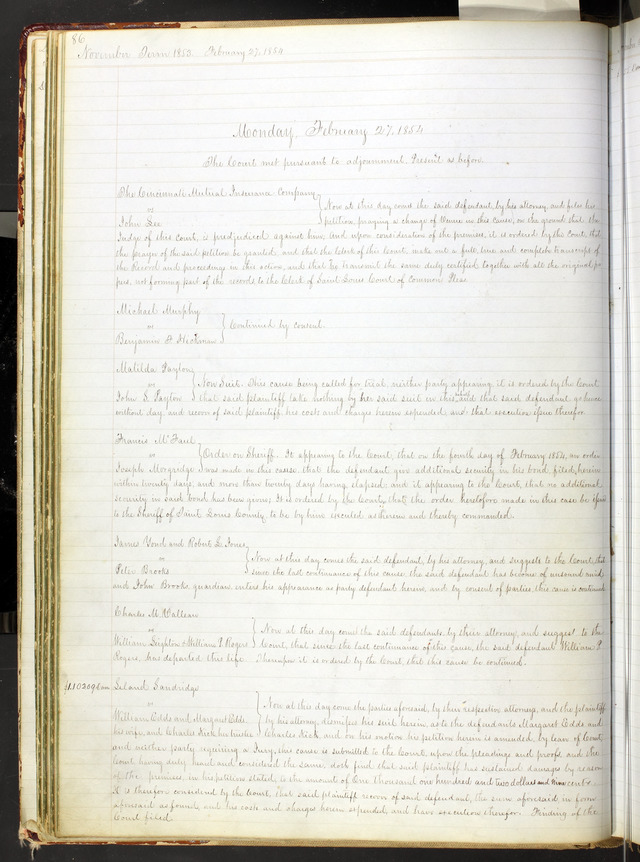 86
November Term 1853. February 27, 1854
Monday, February 27, 1854
The Court met pursuant to adjournment. Present as before
The Cincinnati Mutual Insurance Company
vs
John Lee
Now at this day comes the said defendant, by his attorney, and files his
petition, praying a change of Venue in this cause, on the ground that the
Judge of this Court, is prejudiced against him, And upon consideration of the premises, it is ordered by the Court, that
the prayer of the said petition be granted, and that the Clerk of this Court, make out a full, true and complete transcript of
the Record and proceedings in this action, and that he transmit the same duly certified together with all the original pa-
pers, not forming part of the record, to the Clerk of Saint Louis Court of Common Pleas.
Michael Murphy
vs
Benjamin F Hickman
Continued by consent.
Matilda Taylor
vs
John S. Taylor
Non Suit. This cause being called for trial, neither party appearing, it is ordered by the Court
that said plaintiff take nothing by her said suit in this behalf, that said defendant go hence
without day and recover of said plaintiff his costs and charges herein expended and that execution issue therefor.
Francis McFaul
vs
Joseph Morgridge
Order on Sheriff. It appearing to the Court, that on the fourth day of February 1854, an order
was made in this cause, that the defendant give additional security in his bond filed herein
within twenty days, and more than twenty days having elapsed, and it appearing to the Court, that no additional
security in said bond has been given; It is ordered by the Court, that the order heretofore made in this case be
to the Sheriff of Saint Louis County, to be by him executed as therein and thereby commanded.
James Yond and Robert L. Jones
vs
Peter Brooks
Now at this day comes the said defendant, by his attorney, and suggests to the Court, that
since the last continuance of this cause the said defendant has become of unsound mind
and John Brooks, guardian, enters his appearance as party defendant herein, and by consent of parties this cause is continued
Charles M. Valleau
vs
William Leighton & William P Rogers
Now at this day come the said defendants, by their attorney, and suggest to the
Court, that since the last continuance of this cause, the said defendant William P
Rogers, has departed this life. Thereupon it is ordered by the Court, that this cause be continued.
Leland Sandridge
vs
William Edds and Margaret Edds
his wife, and Charles Kick her trustee
Now at this day come the parties aforesaid, by their respective attorneys, and the plaintiff
by his attorney, dismisses his suit herein, as to the defendants Margaret Edds and
Charles Kick and on his motion his petition herein is amended, by leave of Court
and neither party requiring a Jury, this cause is submitted to the Court, upon the pleadings and proofs, and the
Court having duly heard and considered the same, doth find that said plaintiff has sustained damages by reason
of the premises, in his petition stated, to the amount of One thousand one hundred and two dollars and nine cents.
It is therefore considered by the Court, That said plaintiff recover of said defendant, the sum aforesaid in form
aforesaid as found, and his costs and charges herein expended, and have execution therefor. Finding of the
Court filed.